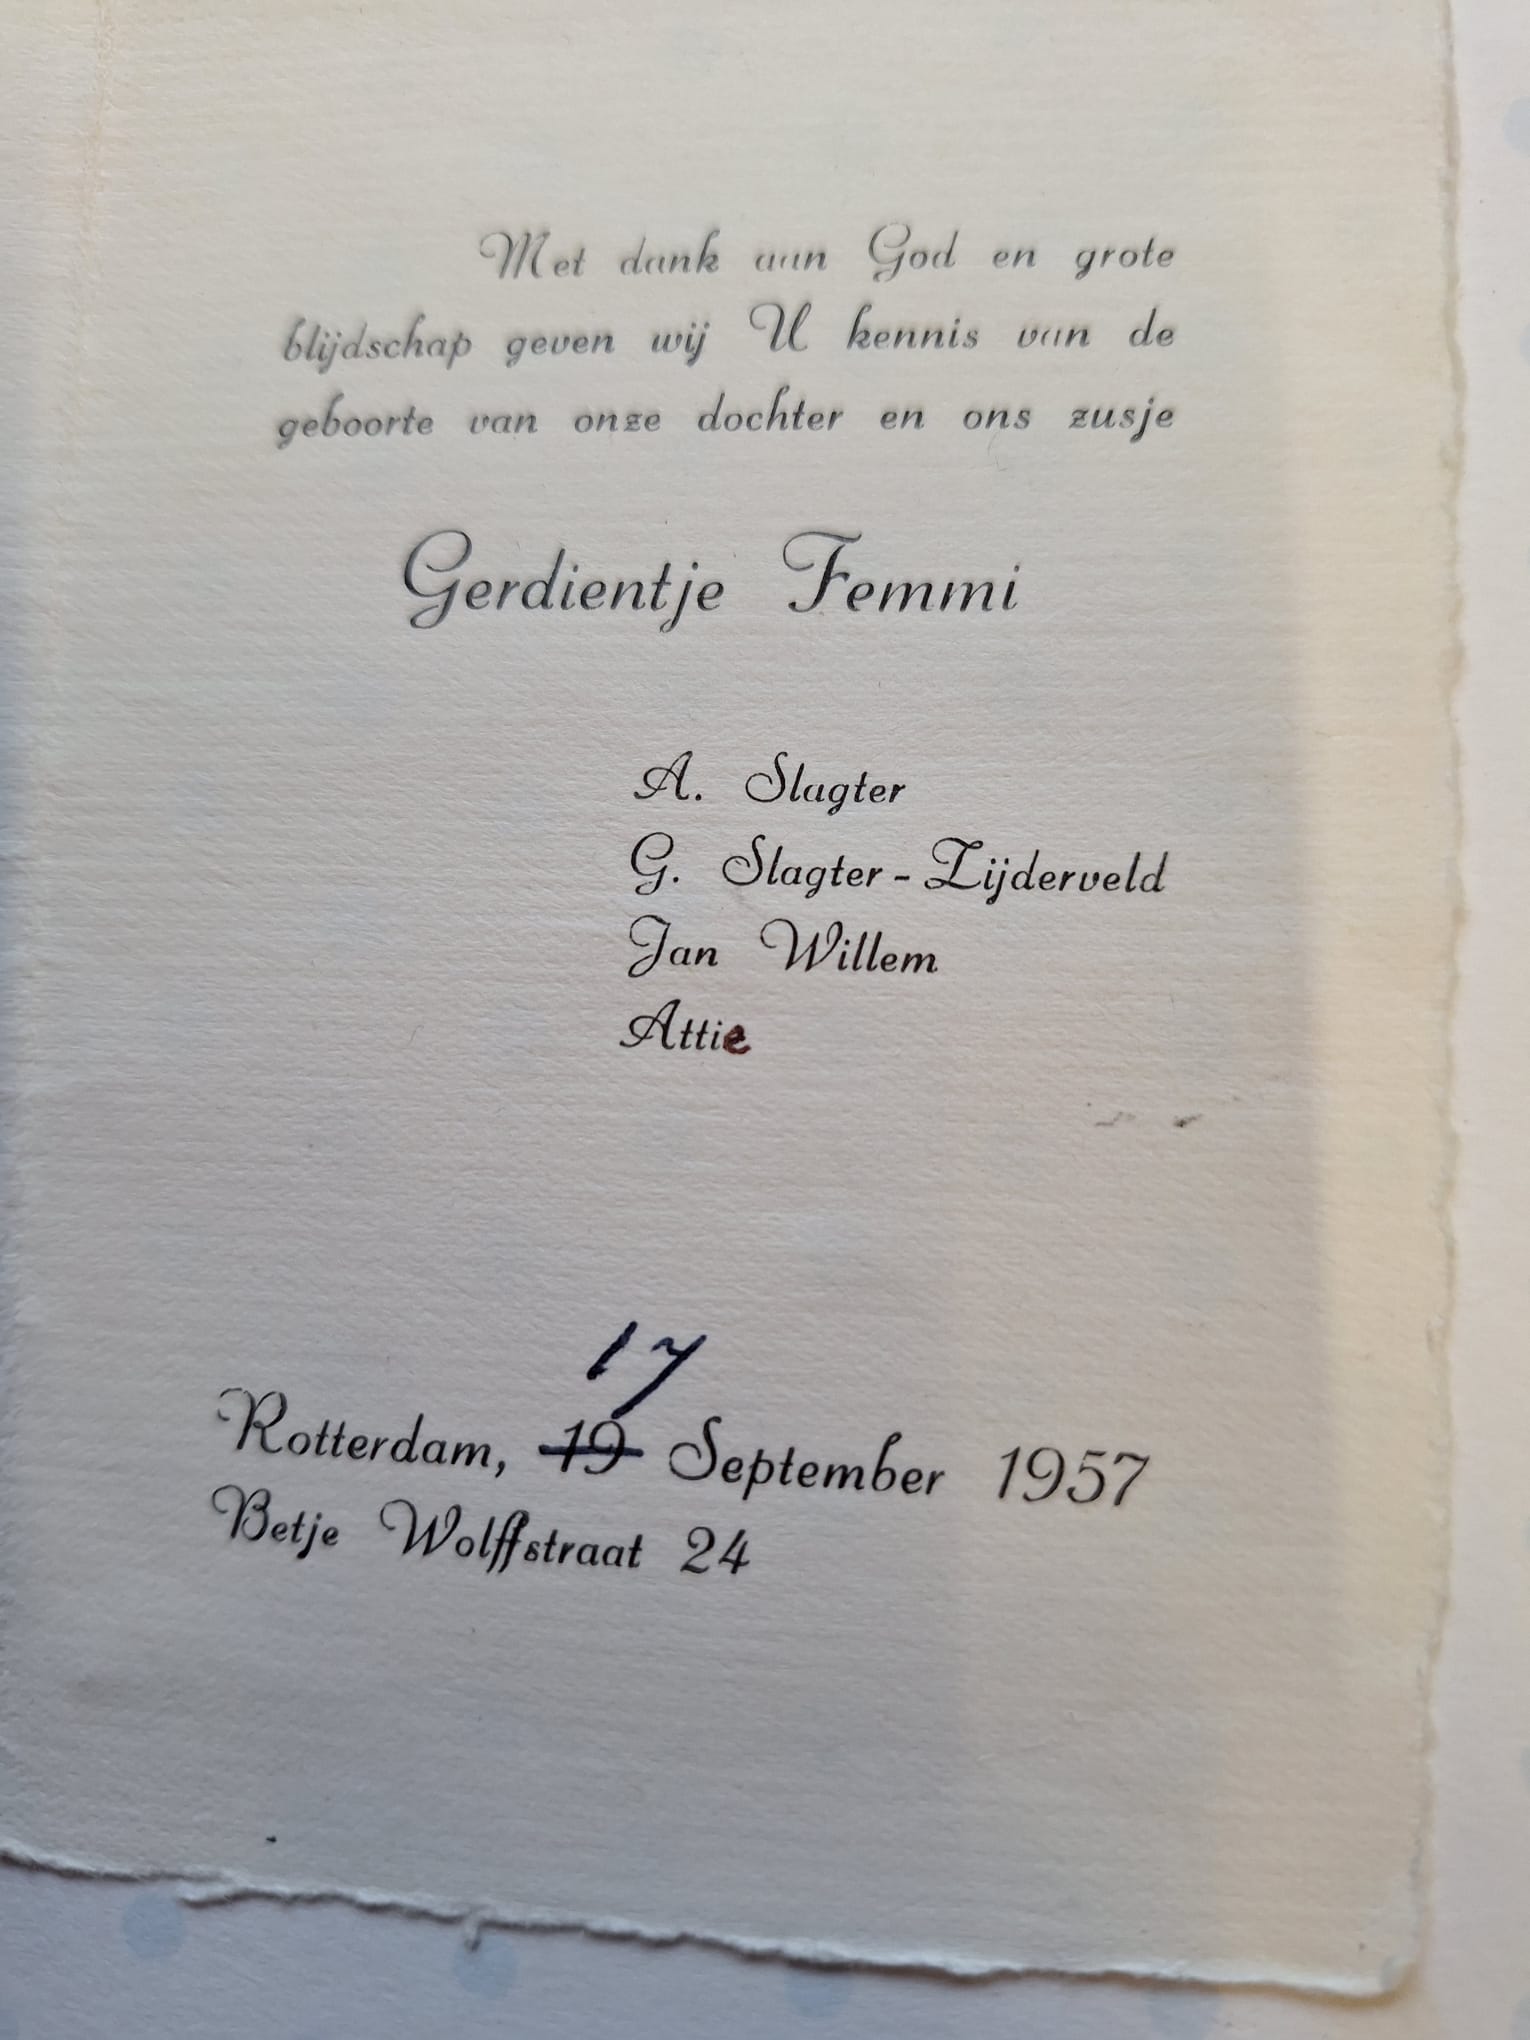 Met dank aan God en grote
blijdschap geven wij U kennis van de
geboorte van onze dochter en ons zusje
Gerdientje Femmi
A. Slagter
G. Slagter - Zijderveld
Jan Willem
Attie
17
Rotterdam, 19 September 1957
Betje Wolffstraat 24